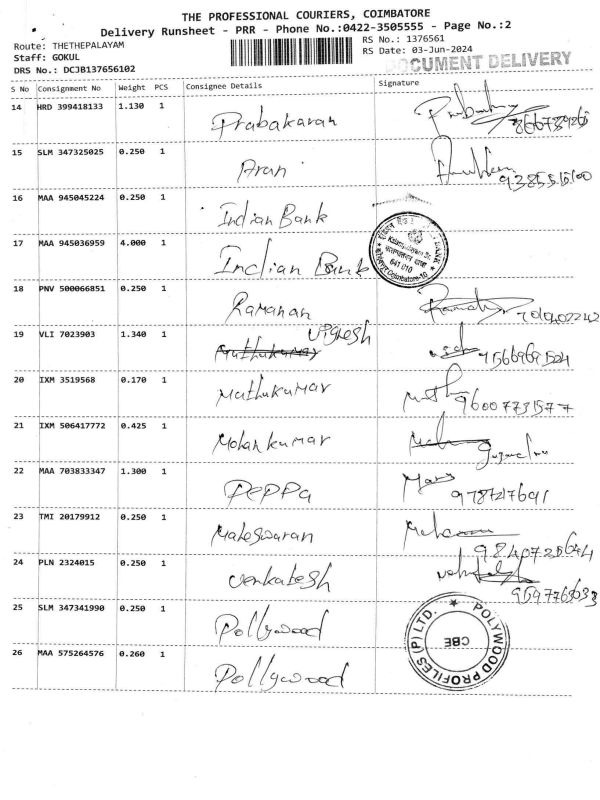 THE PROFESSIONAL COURIERS, COIMBATORE
Delivery Runsheet - PRR - Phone No.:0422-3505555 - Page No.:2
Route: THETHEPALAYAM
RS No.: 1376561
Staff: GOKUL
RS Date: 03-Jun-2024
DRS No.: DCJB137656102
DOCUMENT DELIVERY
S No Consignment No Weight PCS Consignee Details Signature
14 HRD 399418133 1.130 1 Prabakaran
15 SLM 347325025 0.250 1 Arun
16 MAA 945045224 0.250 1 Indian Bank
17 MAA 945036959 4.000 1 Indian Bank
641 010
18 PNV 500066851 0.250 1 Ramanan
19 VLI 7023903 1.340 1 Muthukumar Vignesh
20 IXM 3519568 0.170 1 Muthukumar
9600773577
21 IXM 506417772 0.425 1 Mohankumar
22 MAA 703833347 1.300 1 PEPPA
9787217691
23 TMI 20179912 0.250 1 Maheswaran
24 PLN 2324015 0.250 1 Venkatesh
25 SLM 347341990 0.250 1 Pollywood
POLYWOOD PROFILES (P) LTD.
CBE
26 MAA 575264576 0.260 1 Pollywood